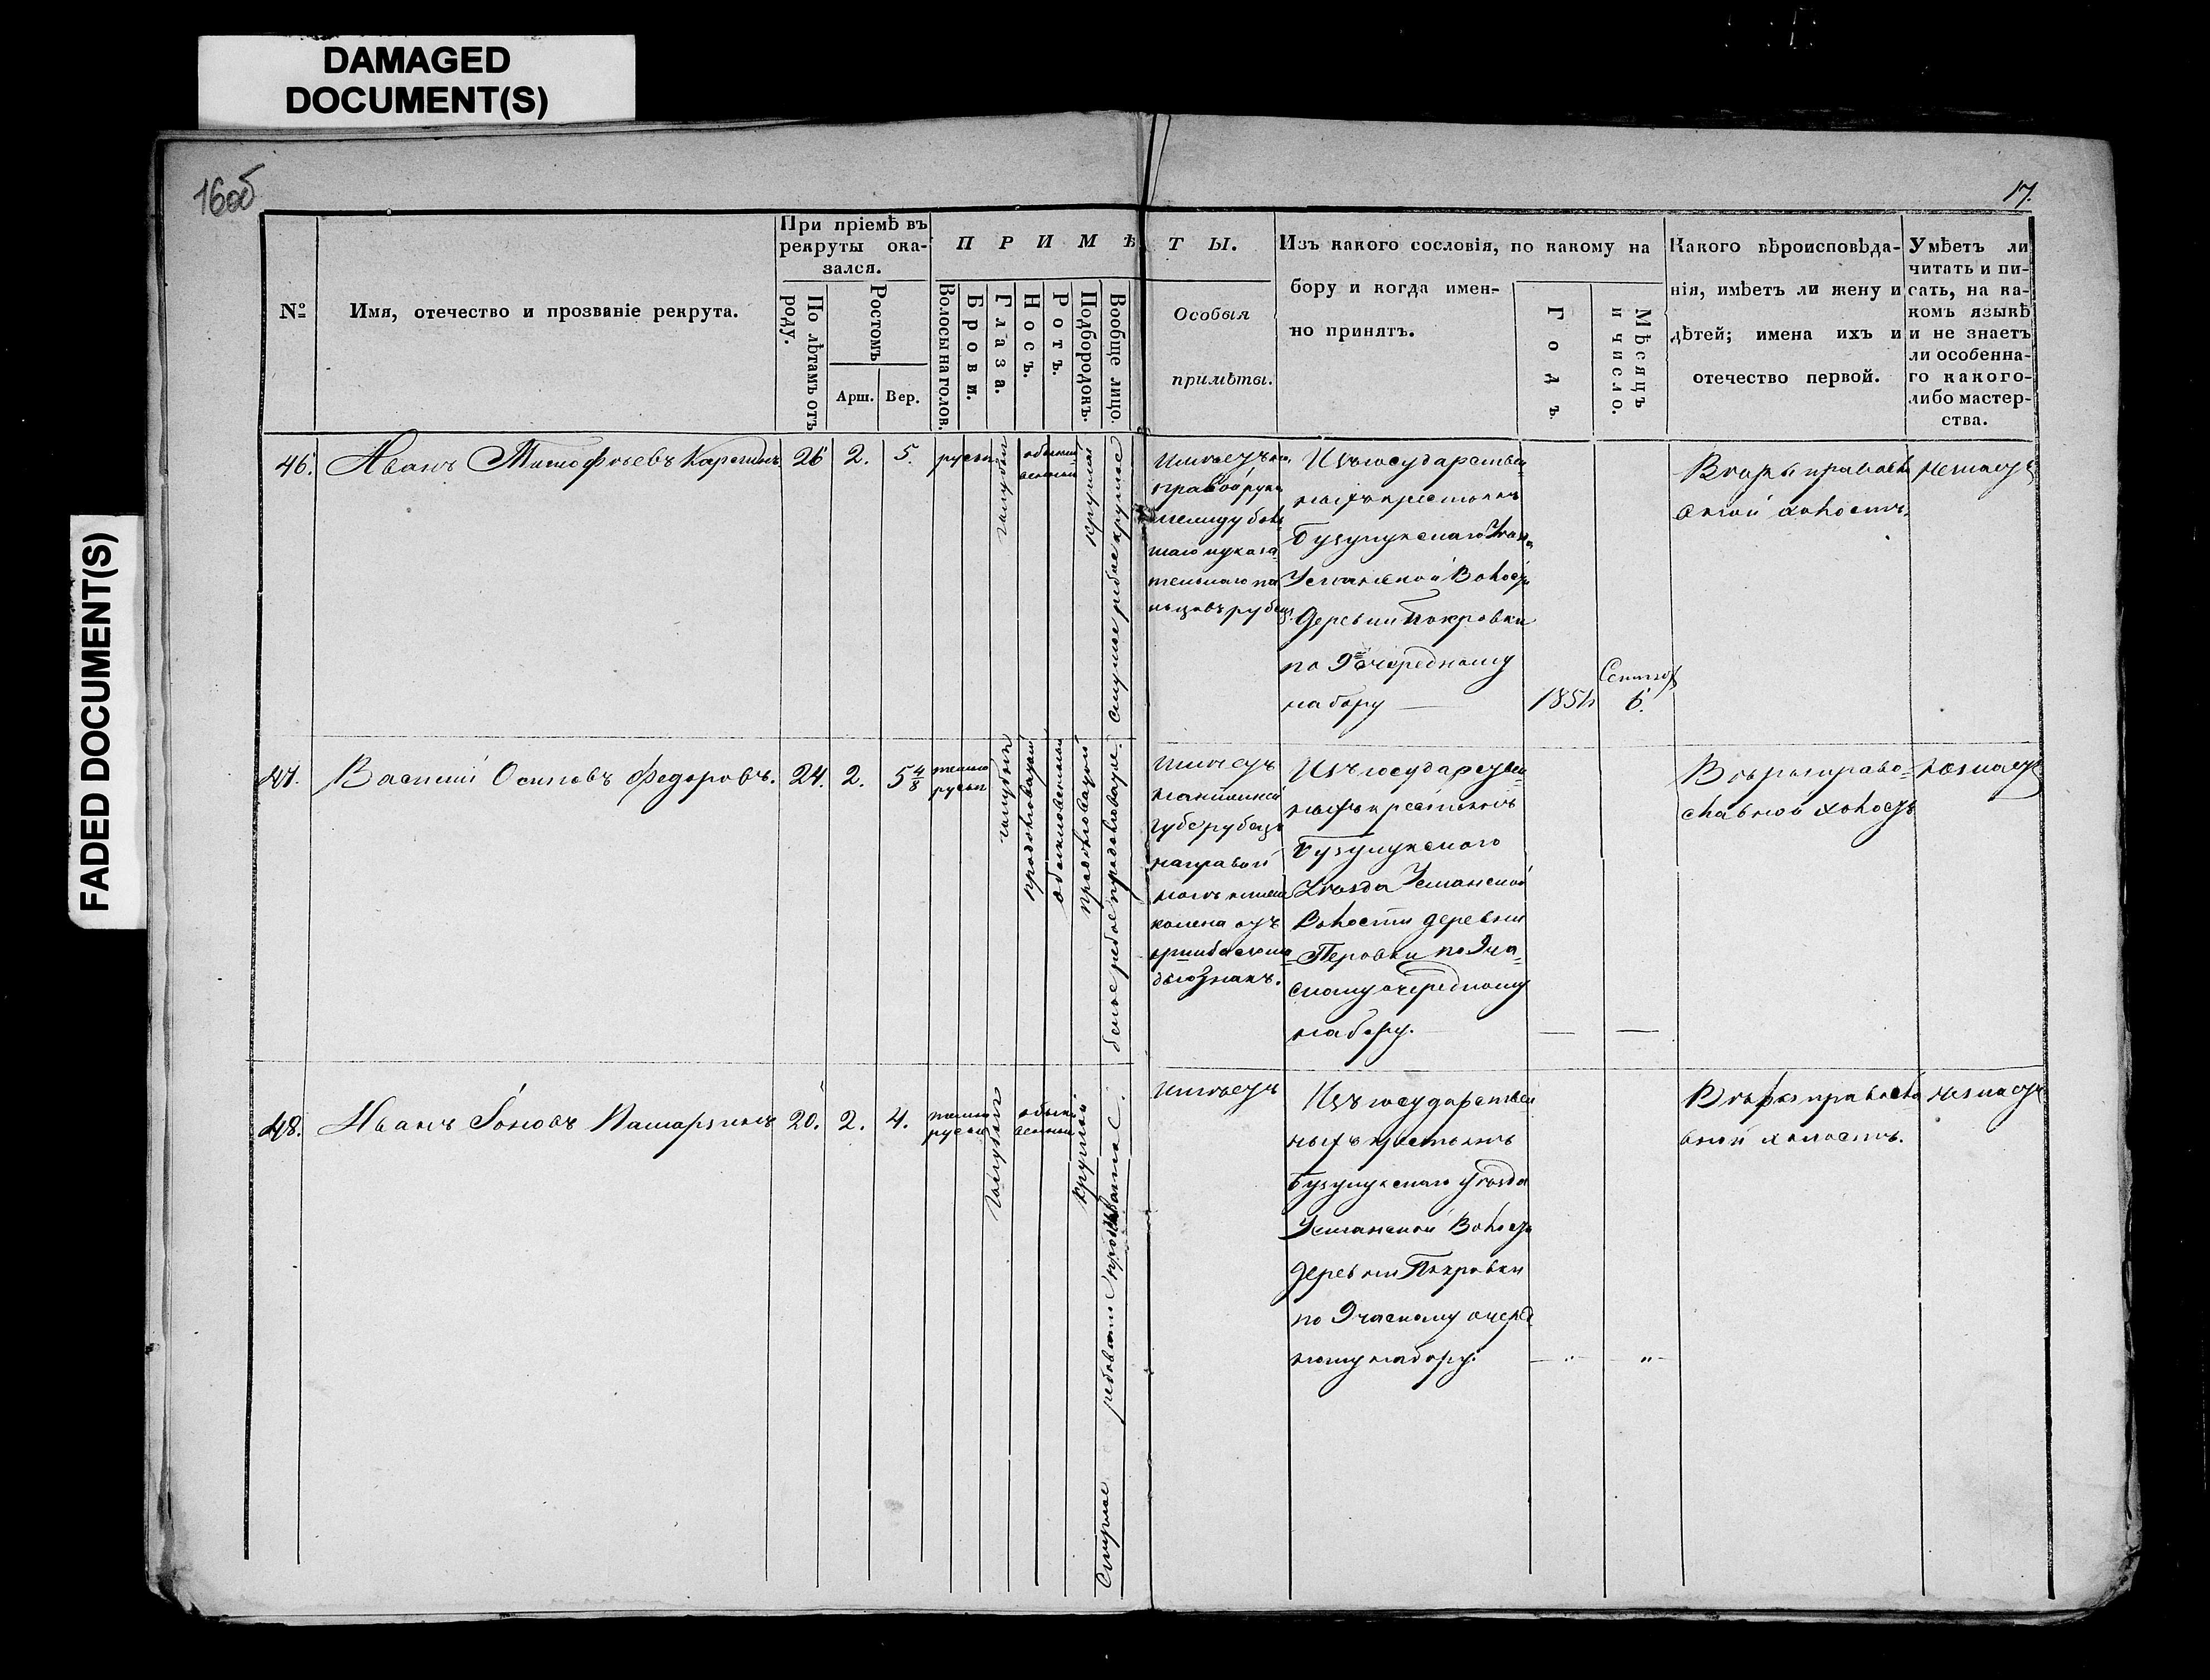 DAMAGED
DOCUMENT(S)
FADED DOCUMENT(S)
16об
17.
№
Имя, отечество и прозваніе рекрута.
При пріемѣ въ
рекруты ока-
зался.
По лѣтамъ отъ
роду.
Ростомъ
Арш.
Вер.
ПРИМѢТЫ.
Волосы на голов.
Брови.
Глаза.
Носъ.
Ротъ.
Подбородокъ.
Вообще лицо.
Особыя
примѣты.
Изъ какого сословія, по какому на
бору и когда имен-
но принятъ.
Годъ.
Мѣсяцъ
и число.
Какого вѣроисповѣда-
нія, имѣетъ ли жену и
дѣтей; имена ихъ и
отечество первой.
Умѣетъ ли
читать и пи-
сать, на ка-
комъ языкѣ
и не знаетъ
ли особенна-
го какого-
либо мастер-
ства.
46.
Иванъ Тимофѣевъ
26
2.
5.
русы
голубыя
обыкно
венный
круглый
смуглое рябое круглое
Имѣетъ на
правой руке
между боль
шаго и указа
тельнаго па
льцовъ рубец.
Изъ государствен
ныхъ крестьянъ
Бузулукскаго Уезда
Усманской Волости
Деревни Покровки
по 9 очередному
набору
1851
Сентяб
6.
Веры православ
ской холостъ.
незнаетъ
47.
Василій Осиповъ Федоровъ.
24.
2.
5 4/8
темно
русыя
голубыя
продолговатый
обыкновенный
продолговатый
белое рябое продолговатое.
Имѣетъ
на нижней
губе рубецъ
на правой
ноге ниже
колена отъ
ушиба
знакъ.
Изъ государствен
ныхъ крестьянъ
Бузулукскаго
Уезда Усманской
Волости деревни
по 9 ча-
сному очередному
набору.
Веры право-
славной холостъ
незнаетъ
48.
Иванъ Іоновъ
20.
2.
4.
темно
русыя
голубыя
обыкно
венный
круглый
Смуглое рябоватое продолговатое.
Имѣетъ
Изъ государствен
ныхъ крестьянъ
Бузулукскаго Уезда
Усманской Волости
деревни Покровки
по 9 часному очеред
ному набору.
"
"
Веры правосла
вной холостъ.
незнаетъ